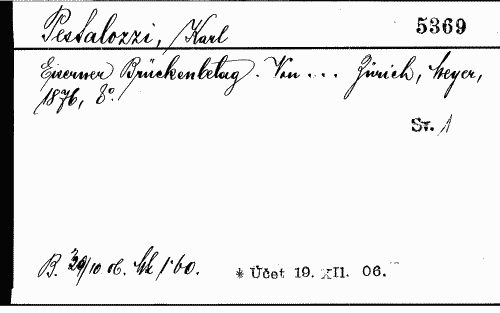 Pestalozzi, Karl 5369
Eiserner Brückenbelag. Von ... Zürich, Meyer,
1876, 8°.
Sv. 1
B. 29/10 06. Mk 1·60. * Účet 19. XII. 06.